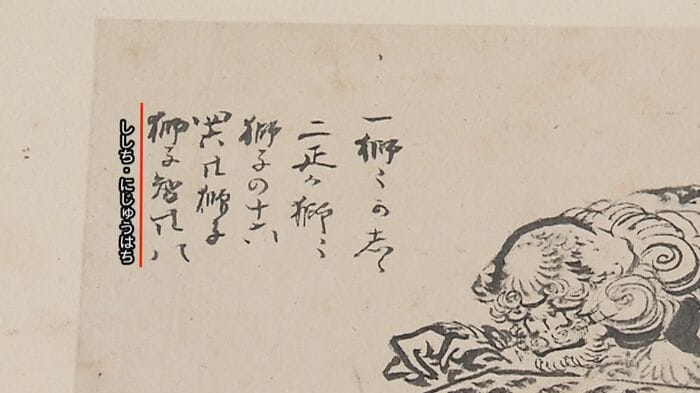 一獅〻の志〻
二疋か獅〻
獅子の十六
廿獅子
獅子智廿八
ししち・にじゅうはち